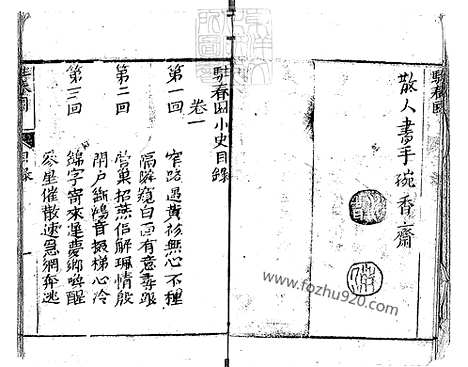 駐春園
散人書于碗香齋
駐春園小史目錄
卷一
第一回
窄路遇黃衫無心不種
隔牆窺白面有意尋跟
第二回
營巢招燕侶解珮情殷
閉戶斷鴻音摽梯心冷
第三回
錦字寄來蓮夢鄉喚醒
參星催散速急網奔逃
www.fozhu920.com